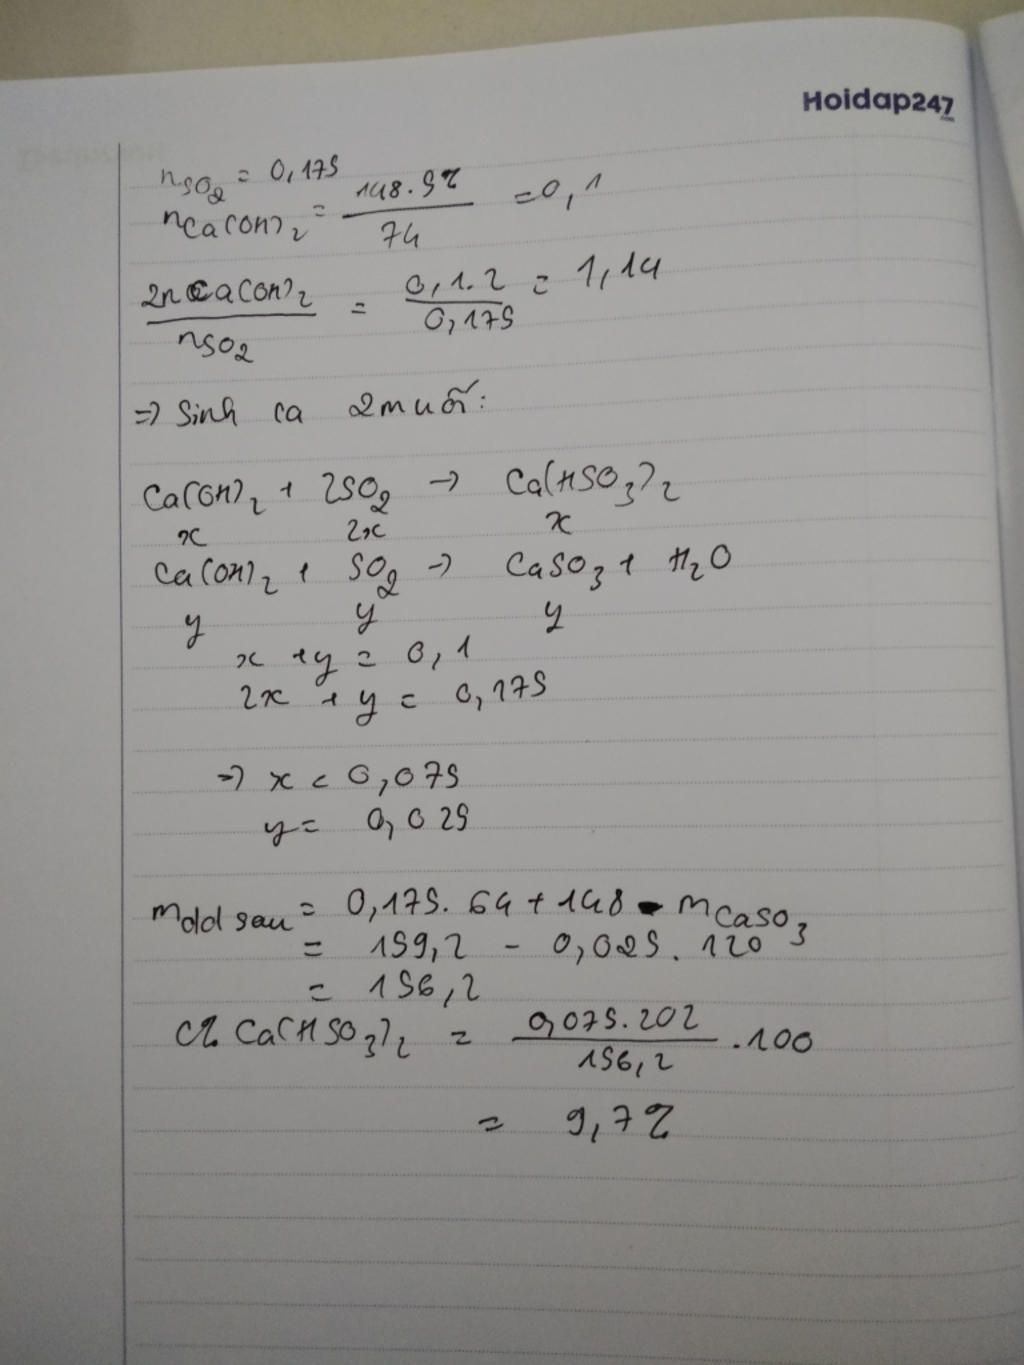 Hoidap247
.com
nSO2 = 0,175
nCa(OH)2 = 148.5% / 74 = 0,1
2nCa(OH)2 / nSO2 = 0,1.2 / 0,175 = 1,14
=> Sinh ra 2 muối:
Ca(OH)2 + 2SO2 -> Ca(HSO3)2
x 2x x
Ca(OH)2 + SO2 -> CaSO3 + H2O
y y y
x + y = 0,1
2x + y = 0,175
=> x = 0,075
y = 0,025
mdd sau = 0,175. 64 + 148 - mCaSO3
= 159,2 - 0,025. 120
= 156,2
C% Ca(HSO3)2 = 0,075.202 / 156,2 .100
= 9,7%